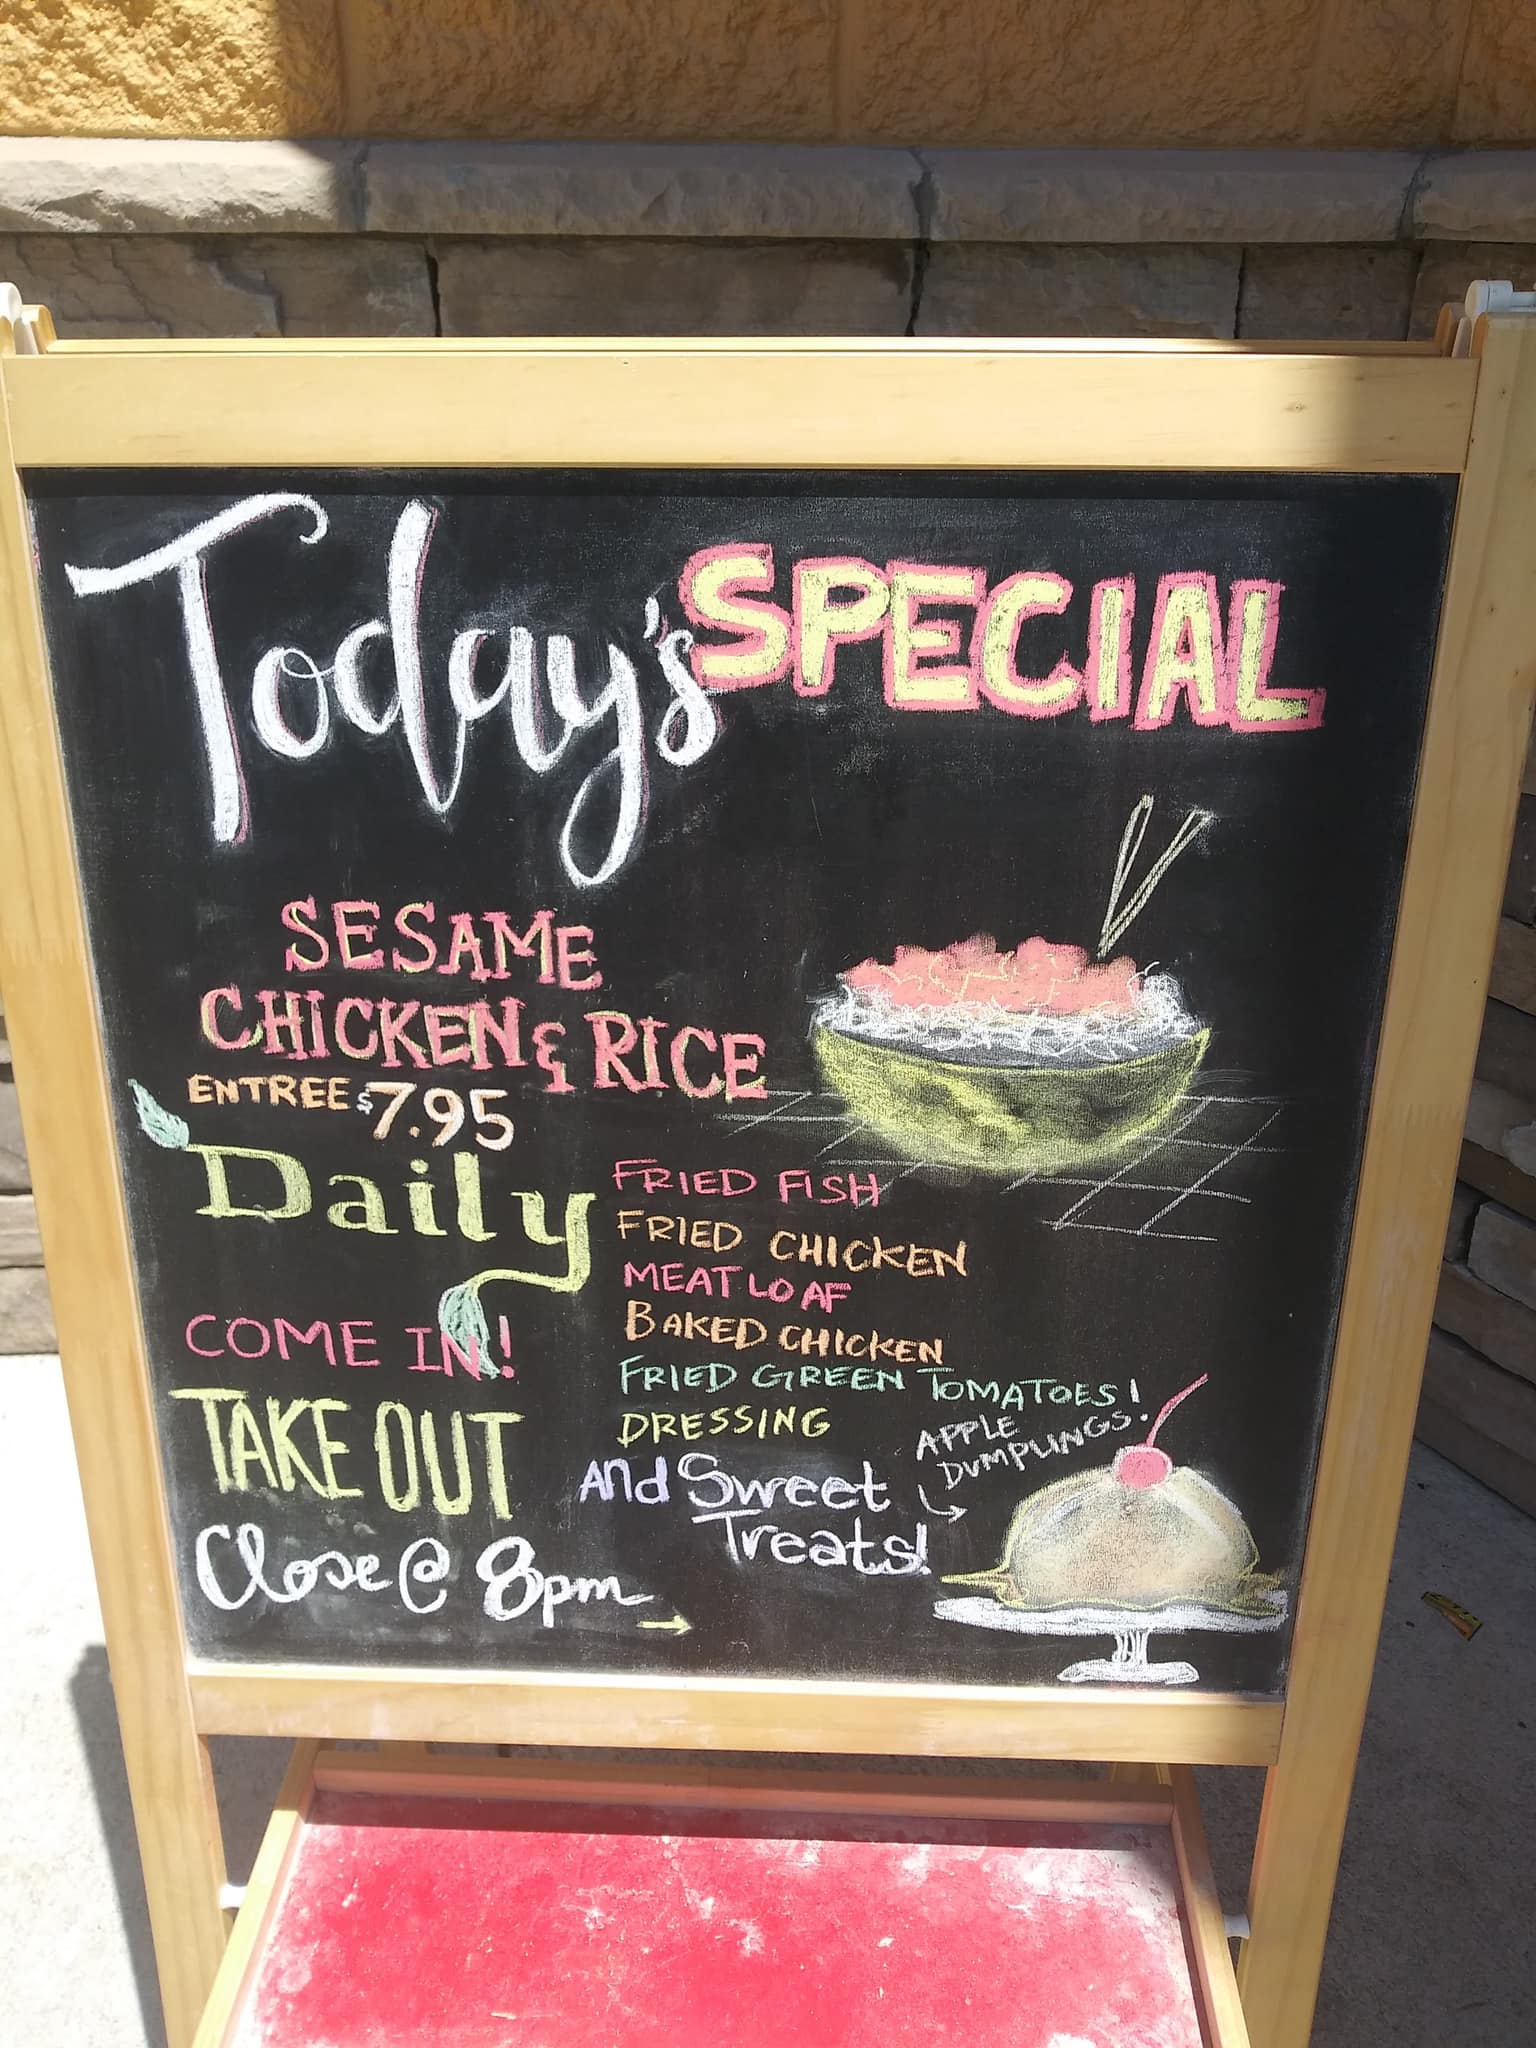 Today's SPECIAL
SESAME
CHICKEN & RICE
ENTREE $7.95
Daily
FRIED FISH
FRIED CHICKEN
MEATLOAF
BAKED CHICKEN
FRIED GREEN TOMATOES!
DRESSING
AND Sweet
Treats!
APPLE
DUMPLINGS!
COME IN!
TAKE OUT
Close @ 8pm